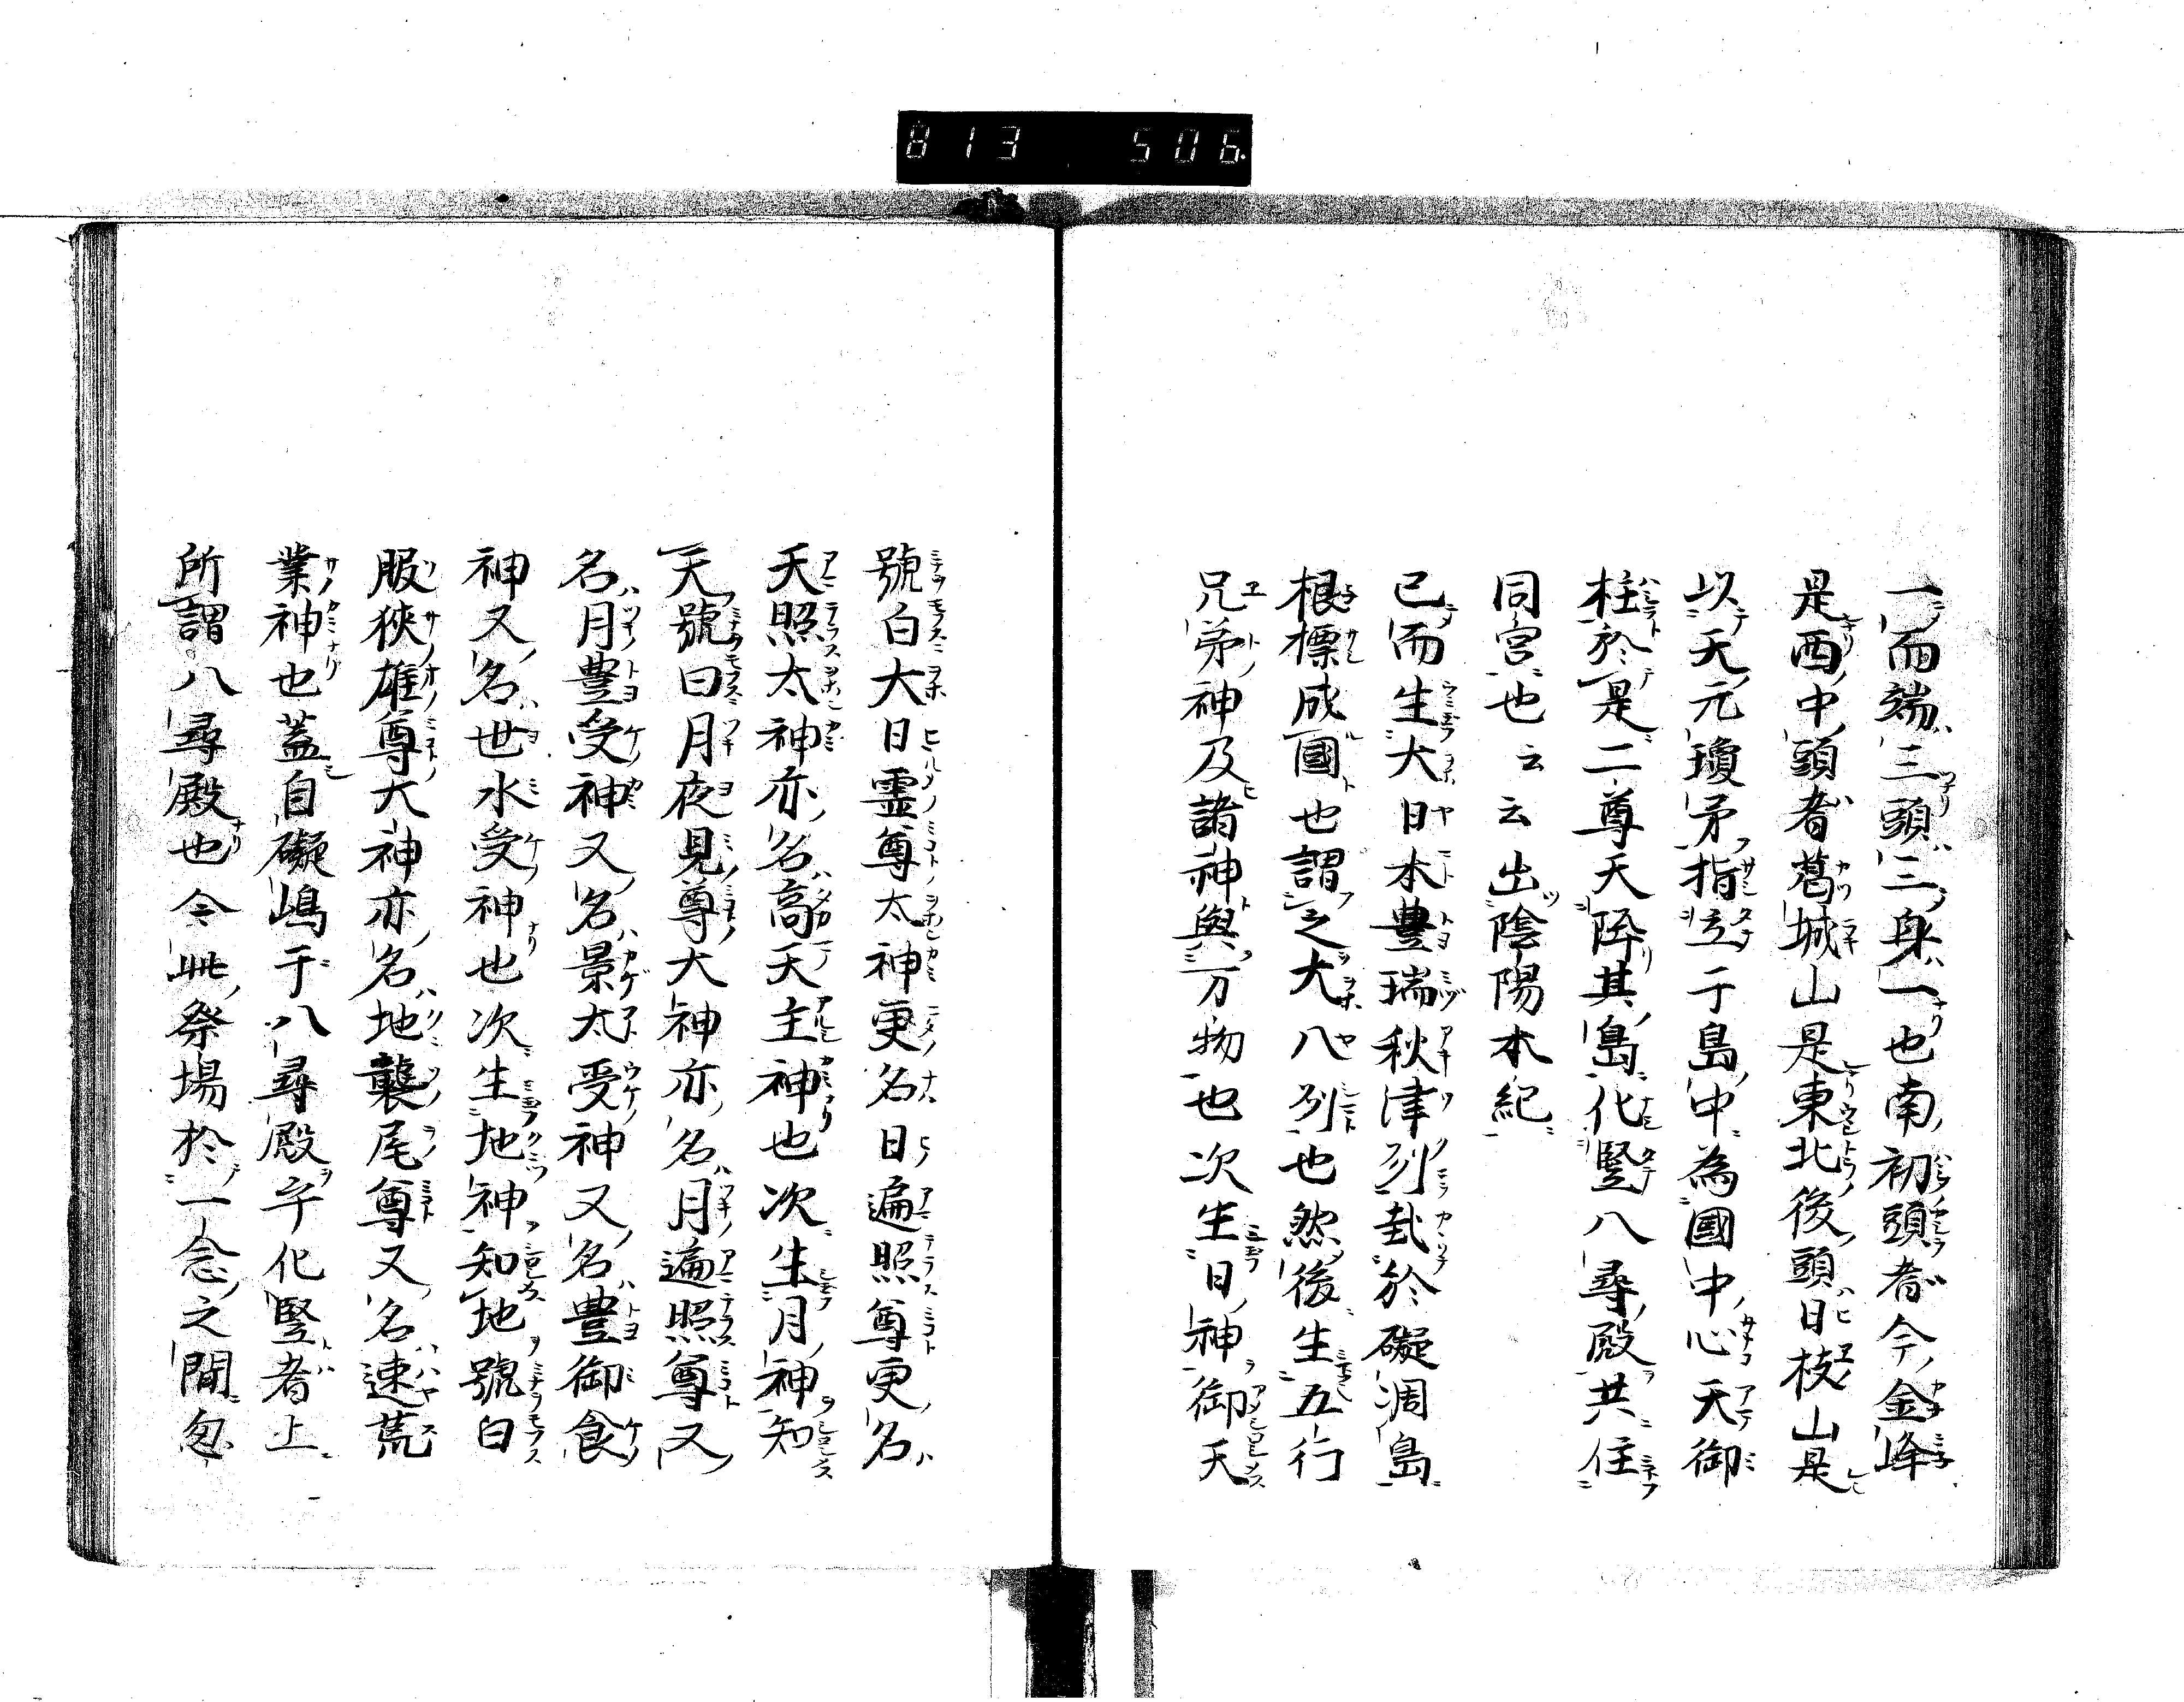 813 506.
一而端三頭三身一也南初頭者今金峰
是西中頭者葛城山是東北後頭日枝山是
以天元瓊矛指立于島中為國中心天御
柱於是二尊天降其島化竪八尋殿共住
同宮也云云出陰陽本紀
已而生大日本豊瑞秋津列於礙凋島
根標成國也謂之大八列也然後生五行
兄弟神及諸神與万物也次生日神御天
號白大日霊尊太神更名日遍照尊更名
天照太神亦名高天主神也次生月神知
天號曰月夜見尊大神亦名月遍照尊又
名月豊受神又名景太受神又名豊御食
神又名世水受神也次生地神知地號白
服狭雄尊大神亦名地襲尾尊又名速荒
業神也蓋自礙嶋于八尋殿乎化竪者上
所謂八尋殿也今此祭場於一念之間忽